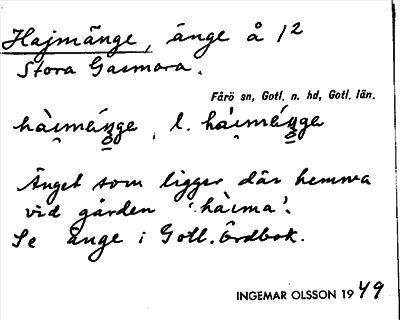 Hajmänge, änge å 1/2
Stora Gasmora.
Fårö sn, Gotl. n. hd, Gotl. län.
l.
Änget som ligger där hemma
vid gården 'hàima'.
Se änge i Gotl. Ordbok.
INGEMAR OLSSON 1949